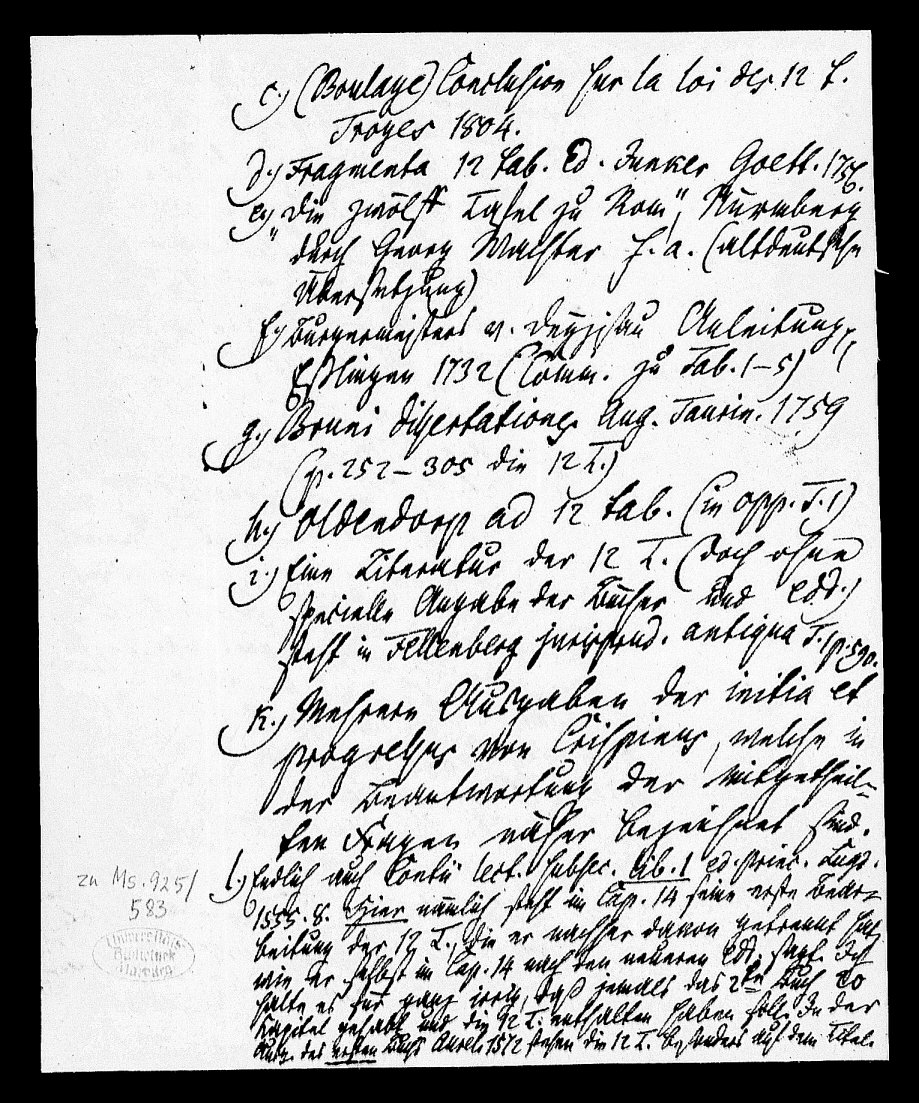 c.) (Boulage) Conclusion sur la loi des 12 t.
Troyes 1804.
d.) Fragmenta 12 tab. Ed. Junker Goett. 17
e.) "Die zwölff Tafel zu Rom", Nürmberg
durch Georg Wachter s. a. (altdeutsche
Übersetzung)
f.) Burgermeisters v. Deyzisau Anleitung,
Eßlingen 1732 (Comm. zu Tab. 1–5)
g.) Bruni dissertationes Aug. Taurin. 1759
(p. 252–305 die 12 T.)
h.) Oldendorp ad 12 tab. (in opp. T. 1)
i.) Eine Literatur der 12 T. (doch ohne
specielle Angabe der Bücher und edd.)
steht in Fellenberg jurisprud. antiqua T. 1 p. 590.
k.) Mehrere Ausgaben der initia et
progressus von Crispinus, welche in
der Beantwortung der mitgetheil-
ten Fragen näher bezeichnet sind.
l.) Endlich auch Contii lect. subsec. Lib. 1 ed. prior. Lugd.
1555. 8. Hier nämlich steht im Cap. 14 seine erste Bear-
beitung der 12 T., die er nachher davon getrennt hat
wie er selbst im Cap. 14 nach den neueren Edd. sagt. Ich
halte es für ganz irrig, daß jemals das 2te Buch 20
Kapitel gehabt und die 12 T. enthalten haben soll. In der
Ausg. des ersten Buchs Aurel. 1572 stehen die 12 T. besonders auf dem Titel.
zu Ms. 925/
583
Universitäts
Bibliothek
Marburg